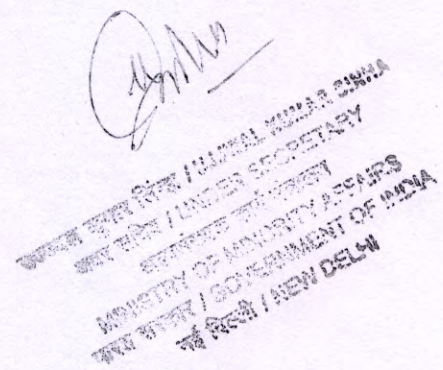 उज्जवल कुमार सिंहा / UJJWAL KUMAR SINHA
अवर सचिव / UNDER SECRETARY
अल्पसंख्यक कार्य मंत्रालय
MINISTRY OF MINORITY AFFAIRS
भारत सरकार / GOVERNMENT OF INDIA
नई दिल्ली / NEW DELHI